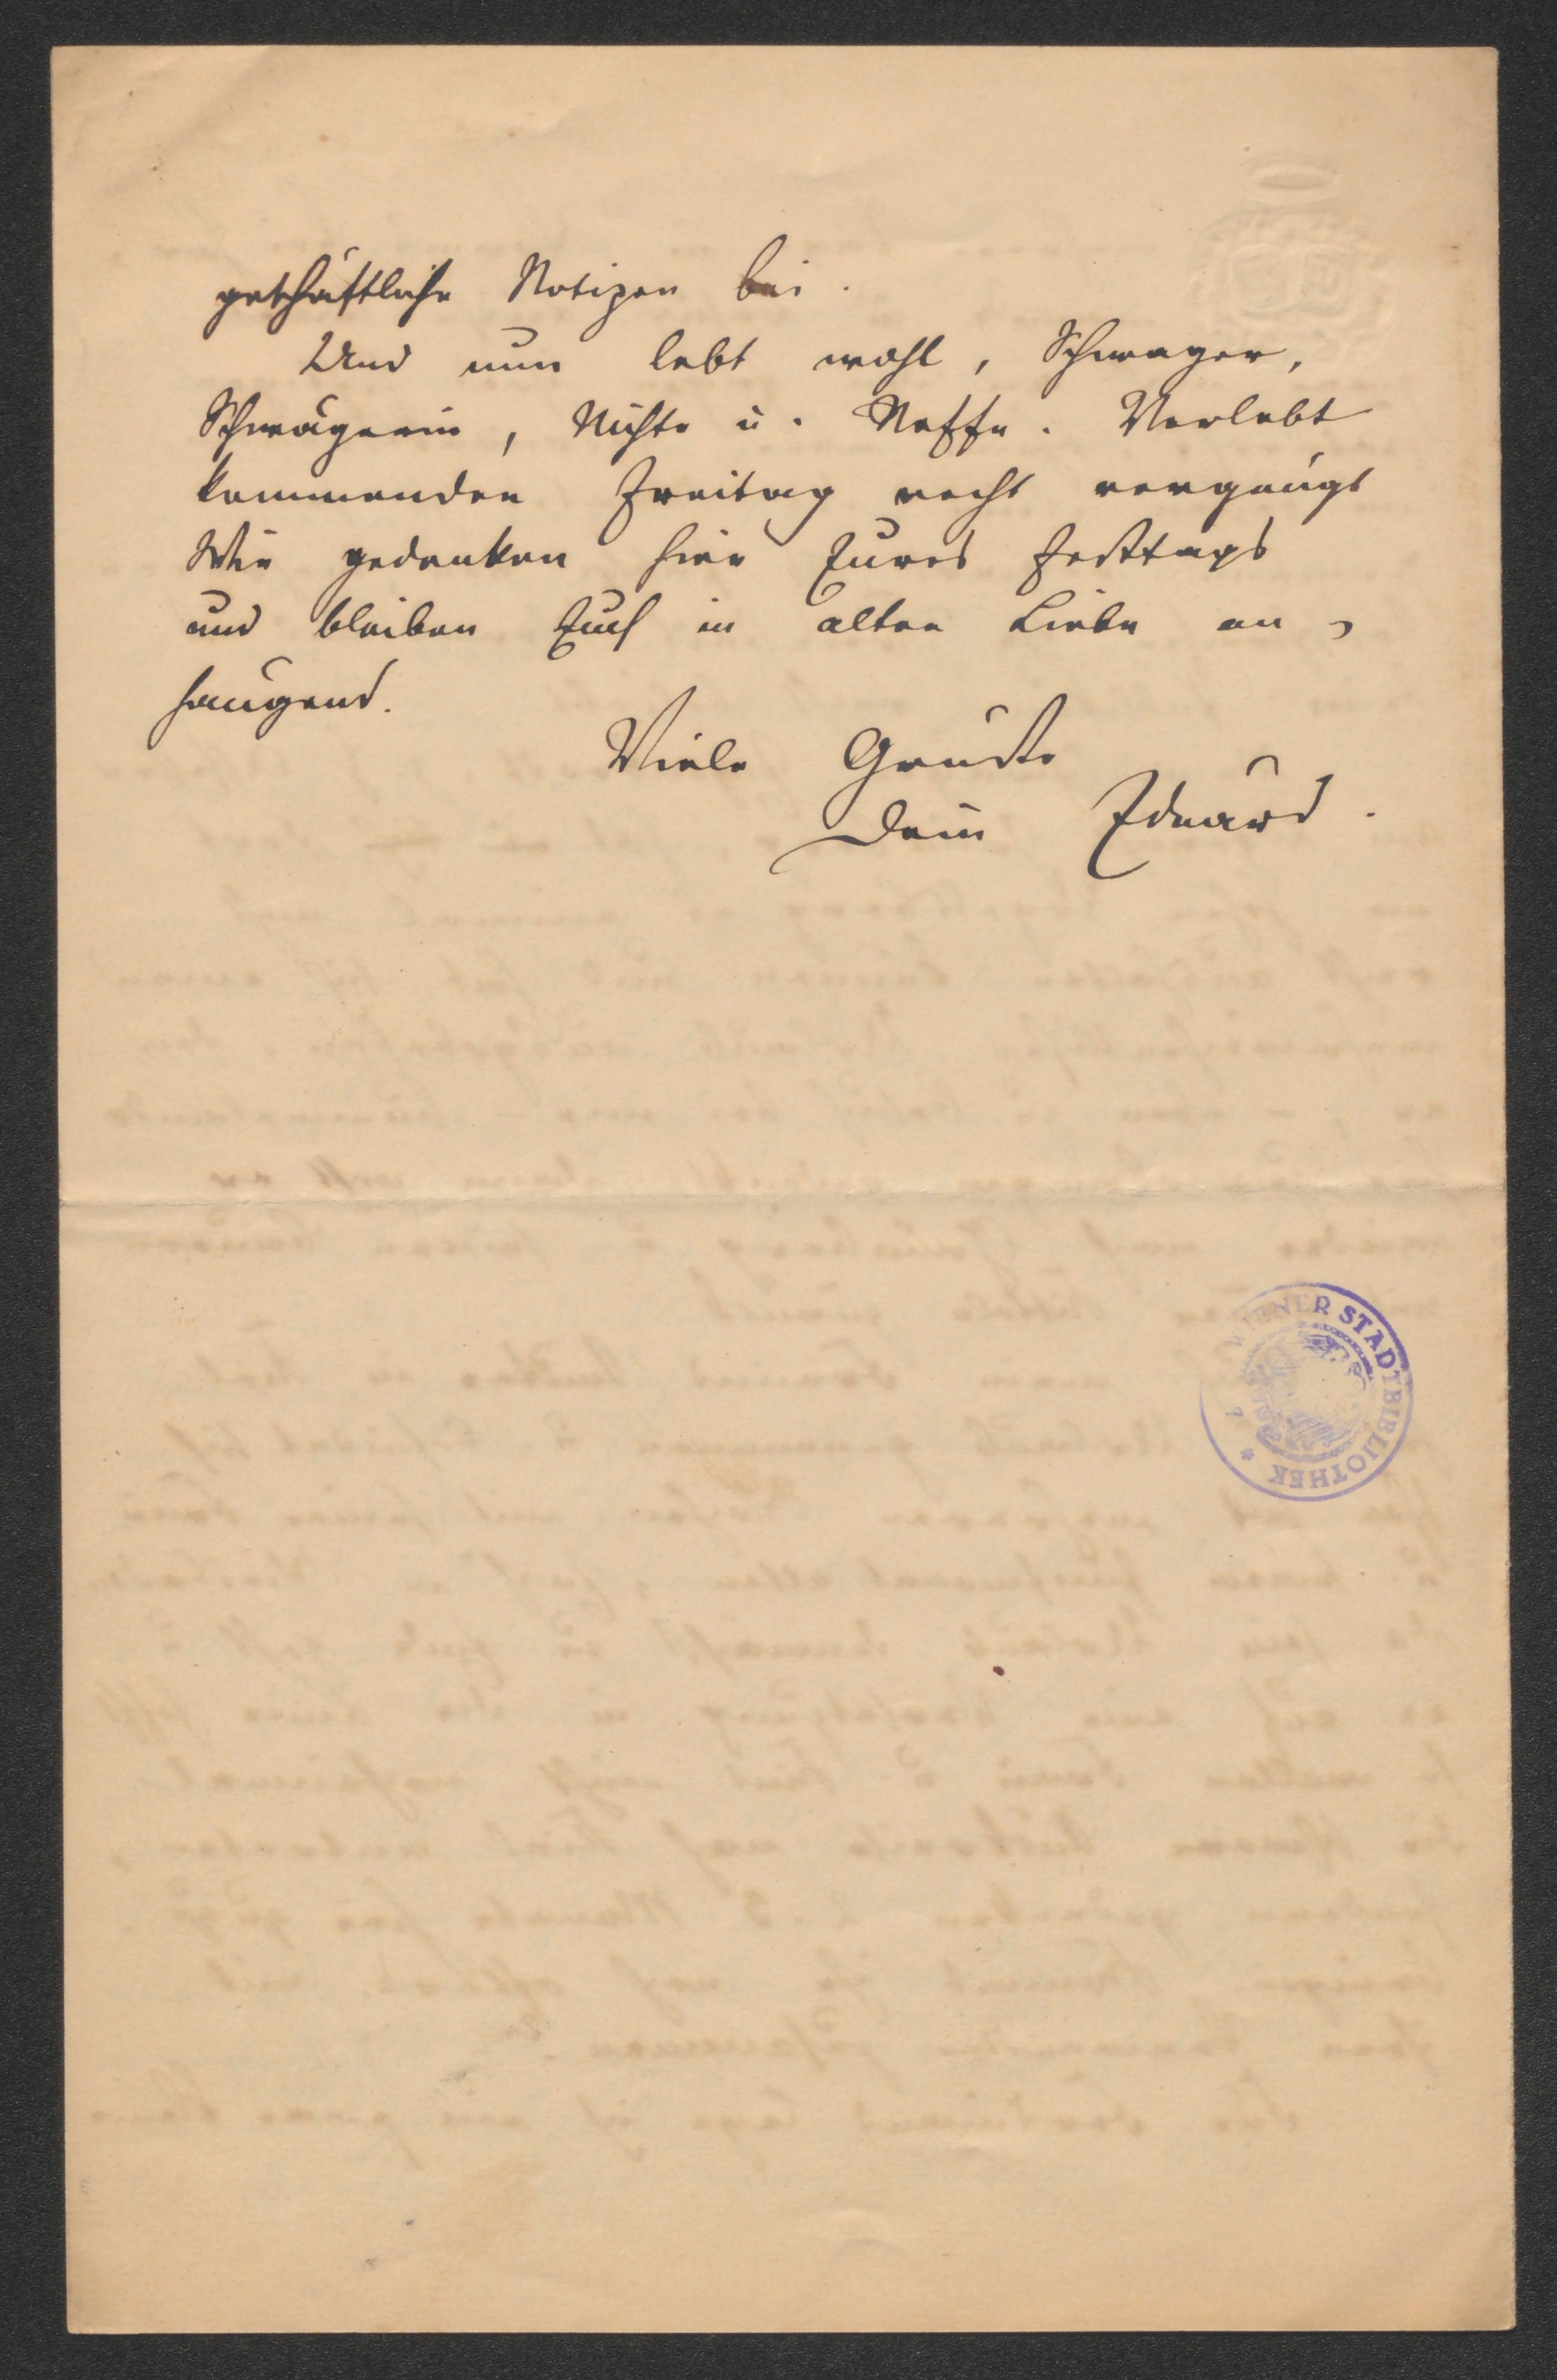 geschäftliche Notizen bei.
Und nun lebt wohl, Schwager,
Schwägerin, Nichte u. Neffe. Verlebt
kommenden Freitag recht vergnügt
Wir gedenken hier Eures Festtags
und bleiben Euch in alter Liebe an-
hangend.
Viele Grüße
Dein Eduard.
WIENER STADTBIBLIOTHEK *